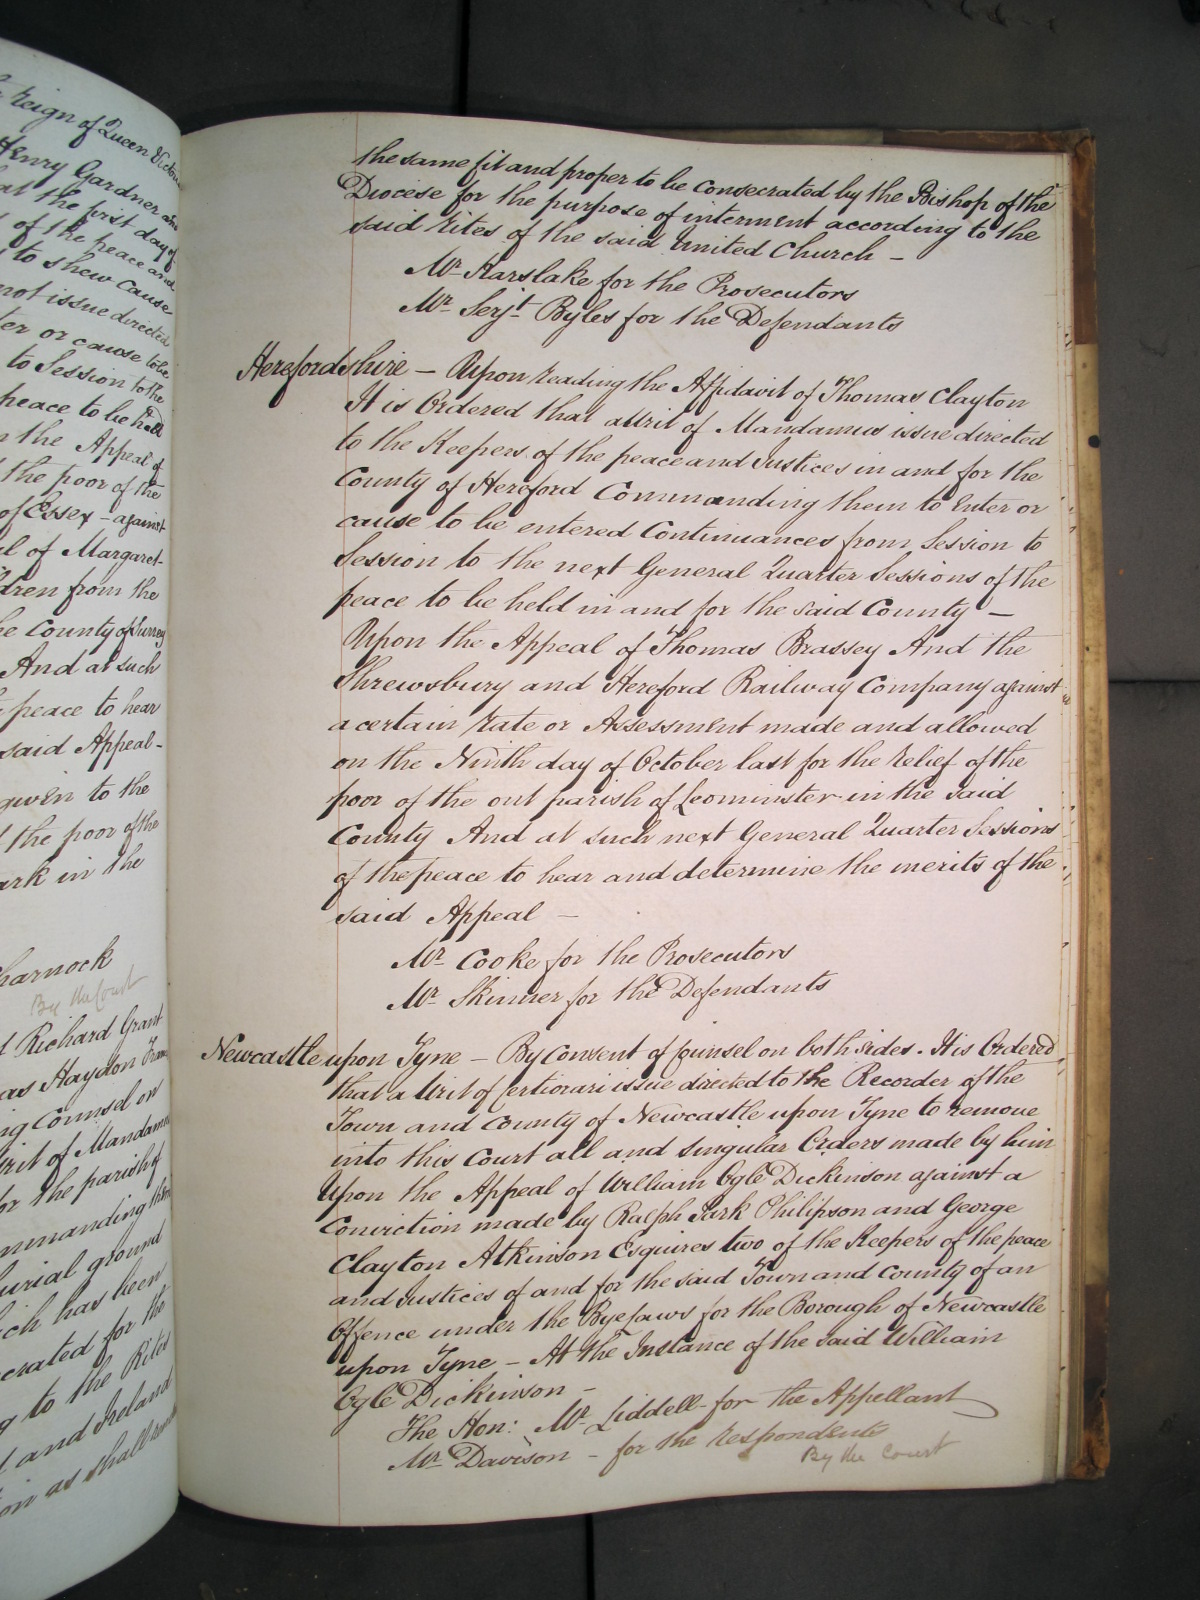 Reign of Queen Victoria
Henry Gardner and
at the first day of
of the peace and
to shew cause
not issue directed
ter or cause to be
to Session to the
peace to be held
n the Appeal of
the poor of the
of Essex – against
al of Margaret
dren from the
he County of Surrey
And at such
peace to hear
said Appeal –
given to the
the poor of the
ark in the
harnock
By the Court
t Richard Grant
as Haydon
ng Counsel on
rit of Mandamus
or the parish of
mmanding them
urial ground
ich has been
crated for the
g to the Rites
and Ireland
on as shall
the same fit and proper to be consecrated by the Bishop of the
Diocese for the purpose of interment according to the
said rites of the said United Church –
Mr. Karslake for the Prosecutors
Mr. Serjt. Byles for the Defendants
Herefordshire – Upon reading the Affidavit of Thomas Clayton
It is Ordered that a Writ of Mandamus issue directed
to the Keepers of the peace and Justices in and for the
County of Hereford Commanding them to Enter or
cause to be entered Continuances from Session to
Session to the next General Quarter Sessions of the
peace to be held in and for the said County –
Upon the Appeal of Thomas Brassey And the
Shrewsbury and Hereford Railway Company against
a certain rate or Assessment made and allowed
on the Ninth day of October last for the relief of the
poor of the out parish of Leominster in the said
County And at such next General Quarter Sessions
of the peace to hear and determine the merits of the
said Appeal –
Mr. Cooke for the Prosecutors
Mr. Skinner for the Defendants
Newcastle upon Tyne – By Consent of Counsel on both sides. It is Ordered
that a Writ of Certiorari issue directed to the Recorder of the
Town and County of Newcastle upon Tyne to remove
into this Court all and singular Orders made by him
Upon the Appeal of William Ogle Dickinson against a
Conviction made by Ralph Park Philipson and George
Clayton Atkinson Esquires two of the Keepers of the peace
and Justices of and for the said Town and County of an
Offence under the Bye Laws for the Borough of Newcastle
upon Tyne – At the Instance of the said William
Ogle Dickinson –
The Hon: Mr. Liddell for the Appellant
Mr. Davison – for the Respondents
By the Court